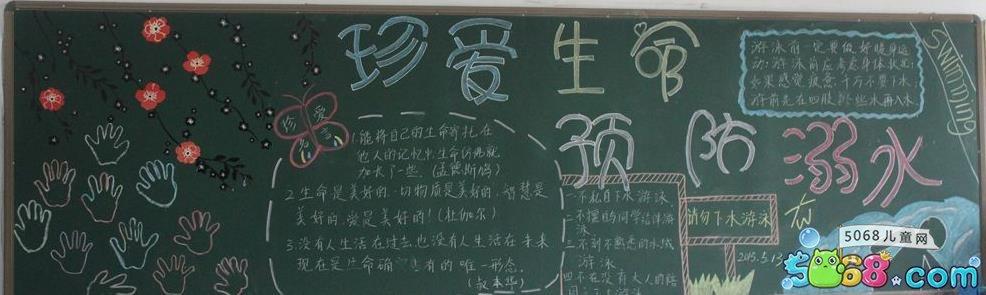 珍爱生命
预防溺水
SWIMMING
游泳前一定要做好暖身运
动:游泳前应考虑身体状况
如果感觉疲惫千万不要下水
游前先在四肢撩些水再入水
珍爱
1.能将自己的生命寄托在
他人的记忆中生命仿佛就
加长了一些.(孟德斯鸠)
2.生命是美好的一切物质是美好的.智慧是
美好的.爱是美好的!(杜伽尔)
3.没有人生活在过去也没有人生活在未来
现在是生命确 占有的唯一形态.
(叔本华)
一不私自下水游泳
二不擅自与同学结伴游
泳
三不到不熟悉的水域
游泳
四不在没有大人的陪
同之下游泳
请勿下水游泳
2015.5.13
5068儿童网
5068.com